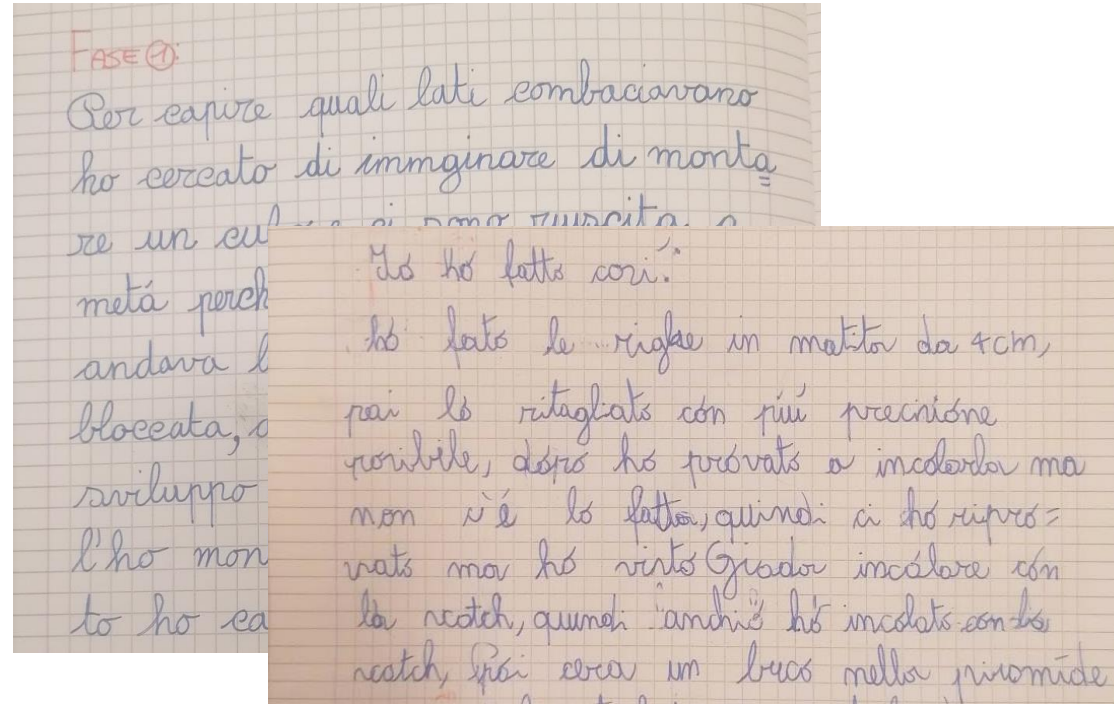 FASE 1:
Per capire quali lati combaciavano
ho cercato di immginare di monta
re un cu
metá perch
andava l
bloccata,
sviluppo
l'ho mon
to ho ca
Io ho fatto così:
ho fato le righe in matita da 4cm,
poi lo ritagliato con piú precisione
posibile, dopo ho provato a incolarla ma
non c'é lo fatta, quindi ci ho ripro=
vato ma ho visto Giada incolare con
lo scotch, quindi anchio ho incolato con lo
scotch, poi cera un buco nella piramide